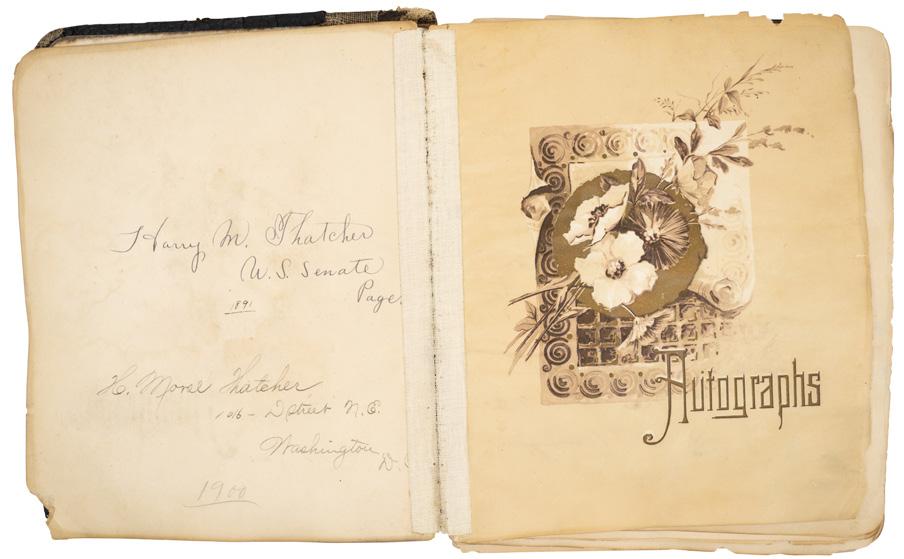 Harry M. Thatcher
U.S. Senate
Page.
1891
H. Morse Thatcher
106 - D Street N.E.
Washington
D.
1900
Autographs